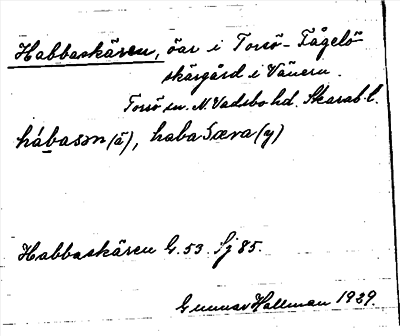 Habbaskären, öar i Torsö-Fågelö
skärgård i Vänern.
Torsö sn. N. Vadsbo hd. Skarab. l.
hábasən (ä), haba Særa (y)
Habbaskären G. 53. Sj 85.
Gunnar Hallman 1929.